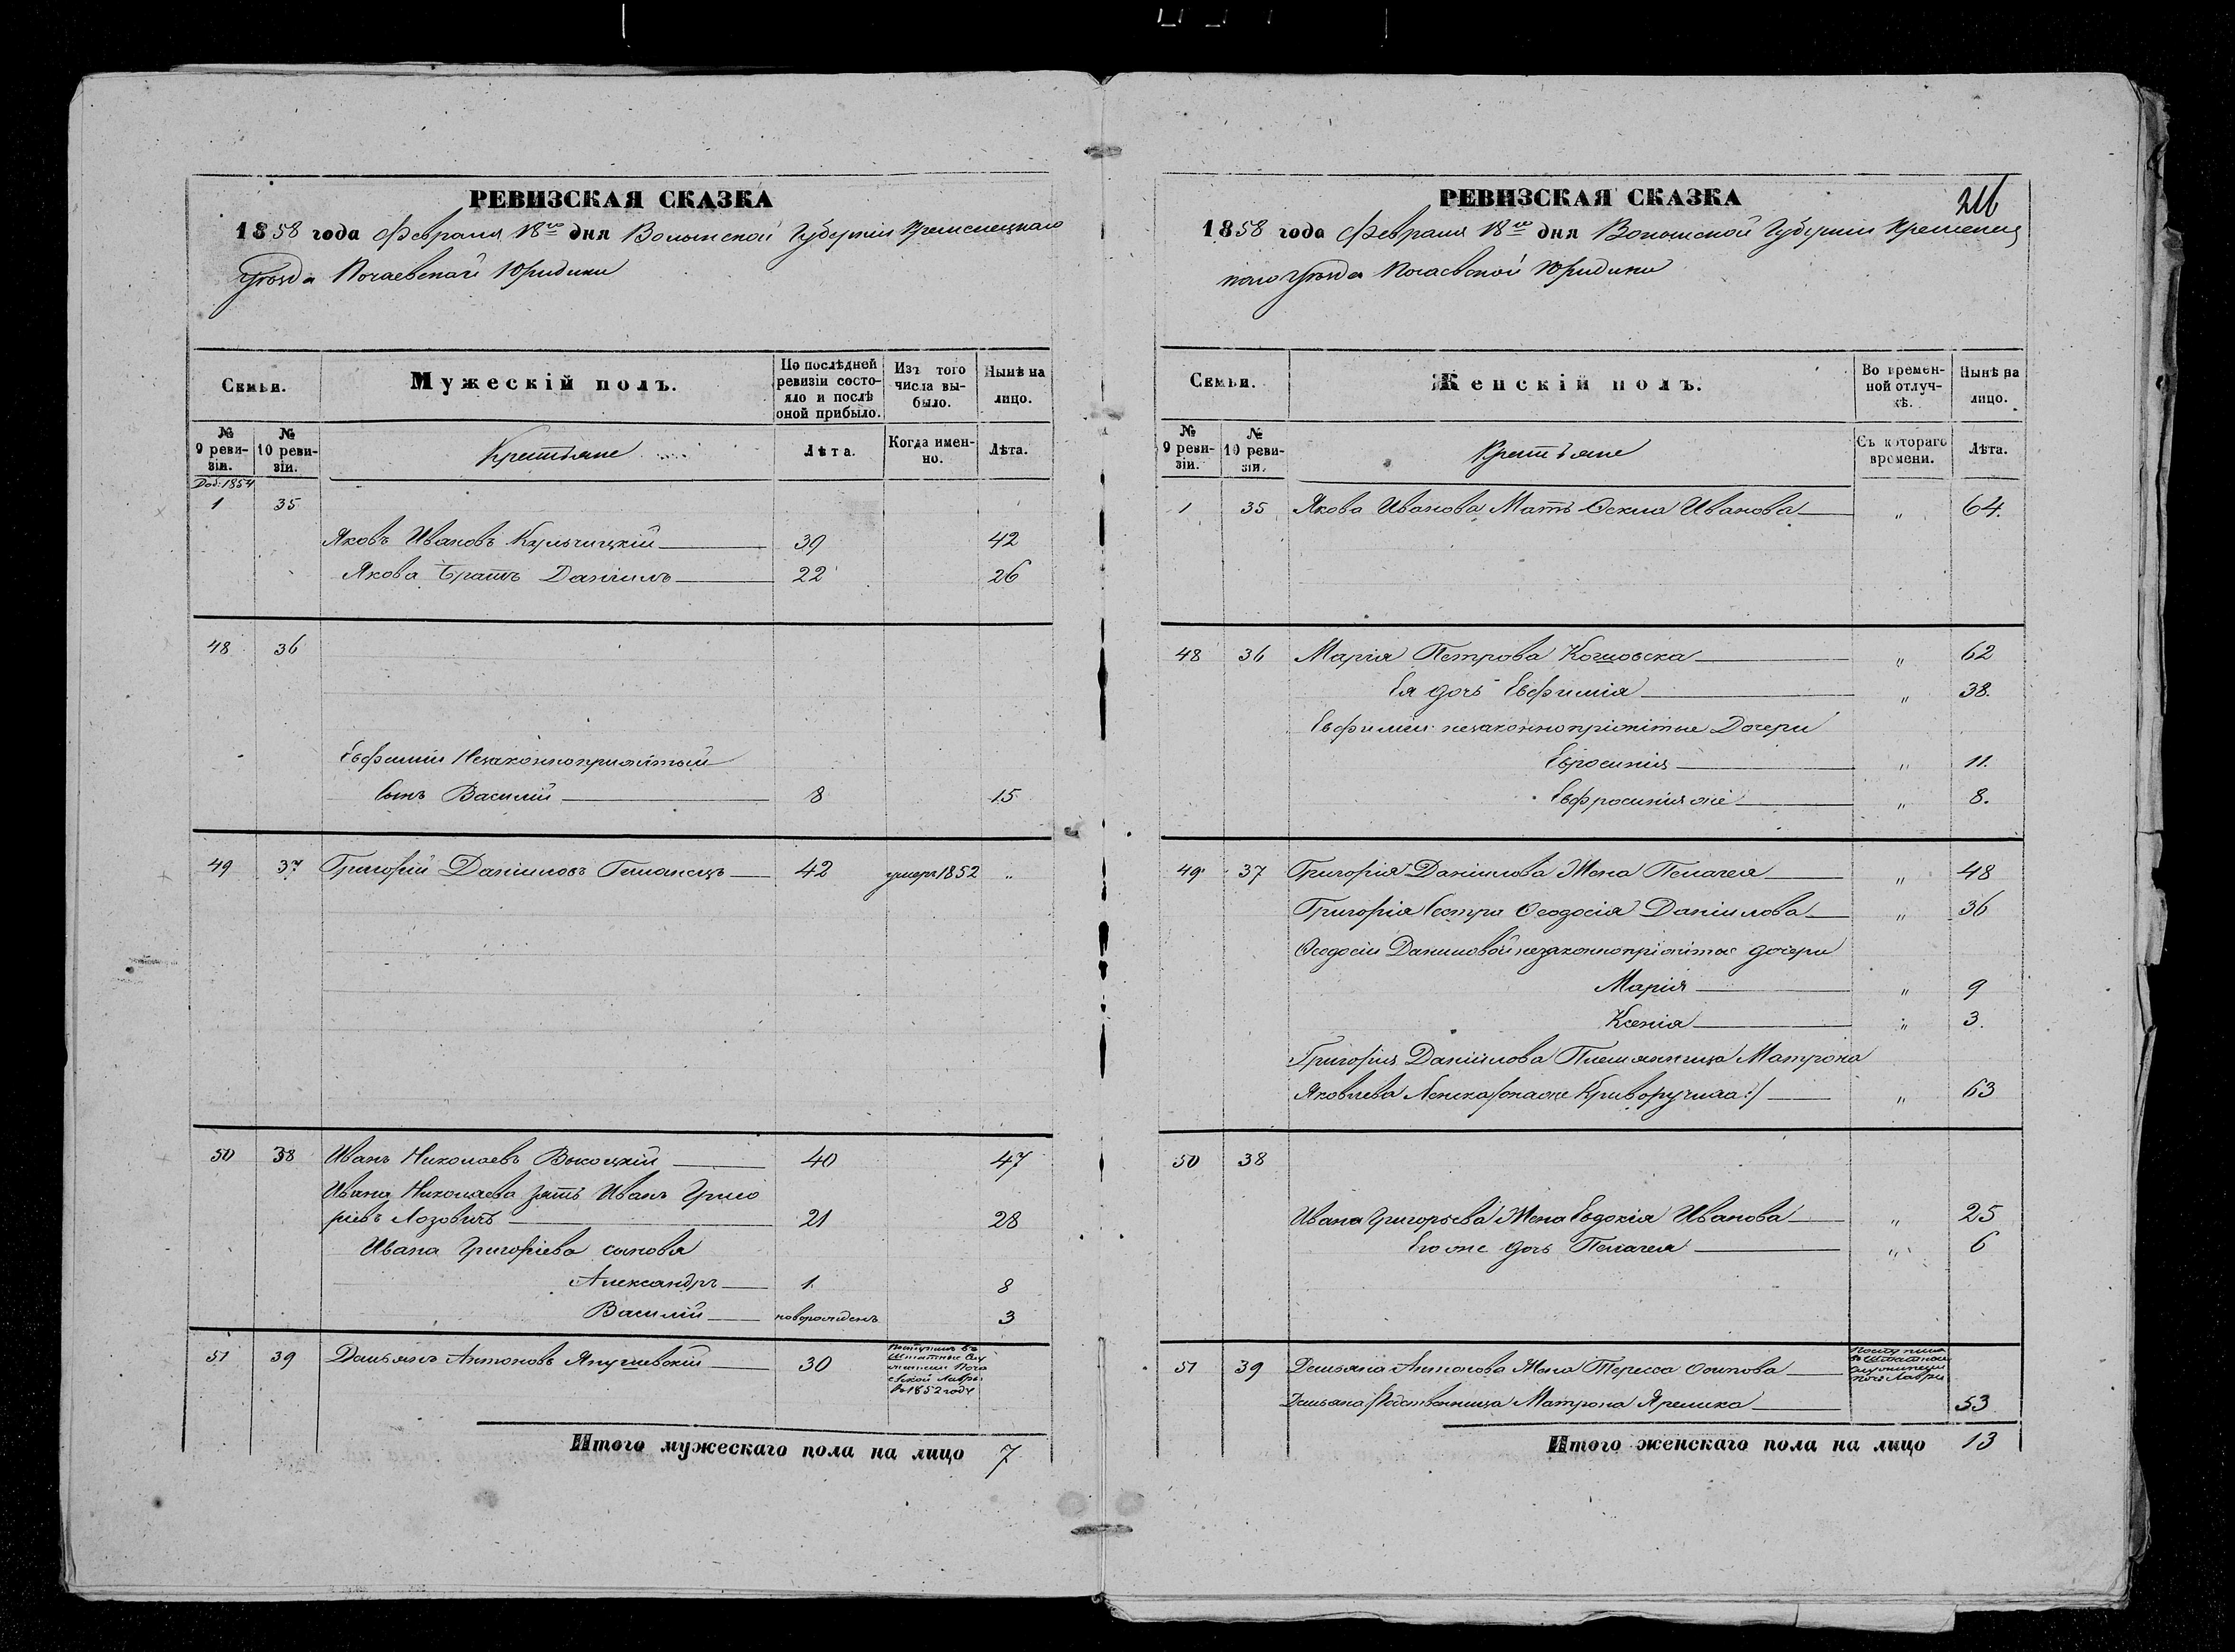 РЕВИЗСКАЯ СКАЗКА
1858 года Февраля 18го дня Волынской Губерніи Кременецкаго
Уѣзда Почаевской Юридики
Семьи.
Мужескій полъ.
По послѣдней ревизіи состояло и послѣ оной прибыло.
Изъ того числа выбыло.
Нынѣ на лицо.
№ 9 ревизіи.
№ 10 ревизіи.
Крестьяне
Лѣта.
Когда именно.
Лѣта.
Доб: 1854
1 35
Яковъ Ивановъ Кульчицкій 39 42
Якова Братъ Даніилъ 22 26
48 36
Евфиміи Незаконноприжитый
Сынъ Василій 8 15
49 37 Григорій Даніиловъ 42 умеръ 1852 "
50 38 Иванъ Николаевъ Высоцкій 40 47
Ивана Николаева зять Иванъ Григо
ріевъ Лозовитъ 21 28
Ивана Григоріева сыновья
Александръ 1 8
Василій новорожденъ 3
51 39 Демьянъ Антоновъ Янушевскій 30
Поступилъ въ
Штатные Слу
жители Поча
евской Лавры
въ 1852 году
Итого мужескаго пола на лицо 7
РЕВИЗСКАЯ СКАЗКА
216
1858 года Февраля 18го дня Волынской Губерніи Кременец
каго Уѣзда Почаевской Юридики
Семьи.
Женскій полъ.
Во временной отлучкѣ.
Нынѣ на лицо.
№ 9 ревизіи.
№ 10 ревизіи.
Крестьяне
Съ котораго времени.
Лѣта.
1 35 Якова Иванова Мать Иванова " 64.
48 36 Марія Петрова " 62
Ея дочь Евфимія " 38.
Евфиміи незаконноприжитые Дочери
" 11.
Евфросинія же " 8.
49 37 Григорія Даніилова Жена Пелагея " 48
Григорія Сестра Ѳеодосія Даніилова " 36
Ѳеодосіи Даниловой незаконноприжитые дочери
Марія " 9
Ксенія " 3.
Григорія Даніилова Племянница Матрона
Яковлева " 63
50 38
Ивана Григорьева Жена Евдокія Иванова " 25
Его же дочь Пелагея " 6
51 39 Демьяна Антонова Жена Тересса Осипова
Демьяна Родственница Матрона 53
Итого женскаго пола на лицо 13